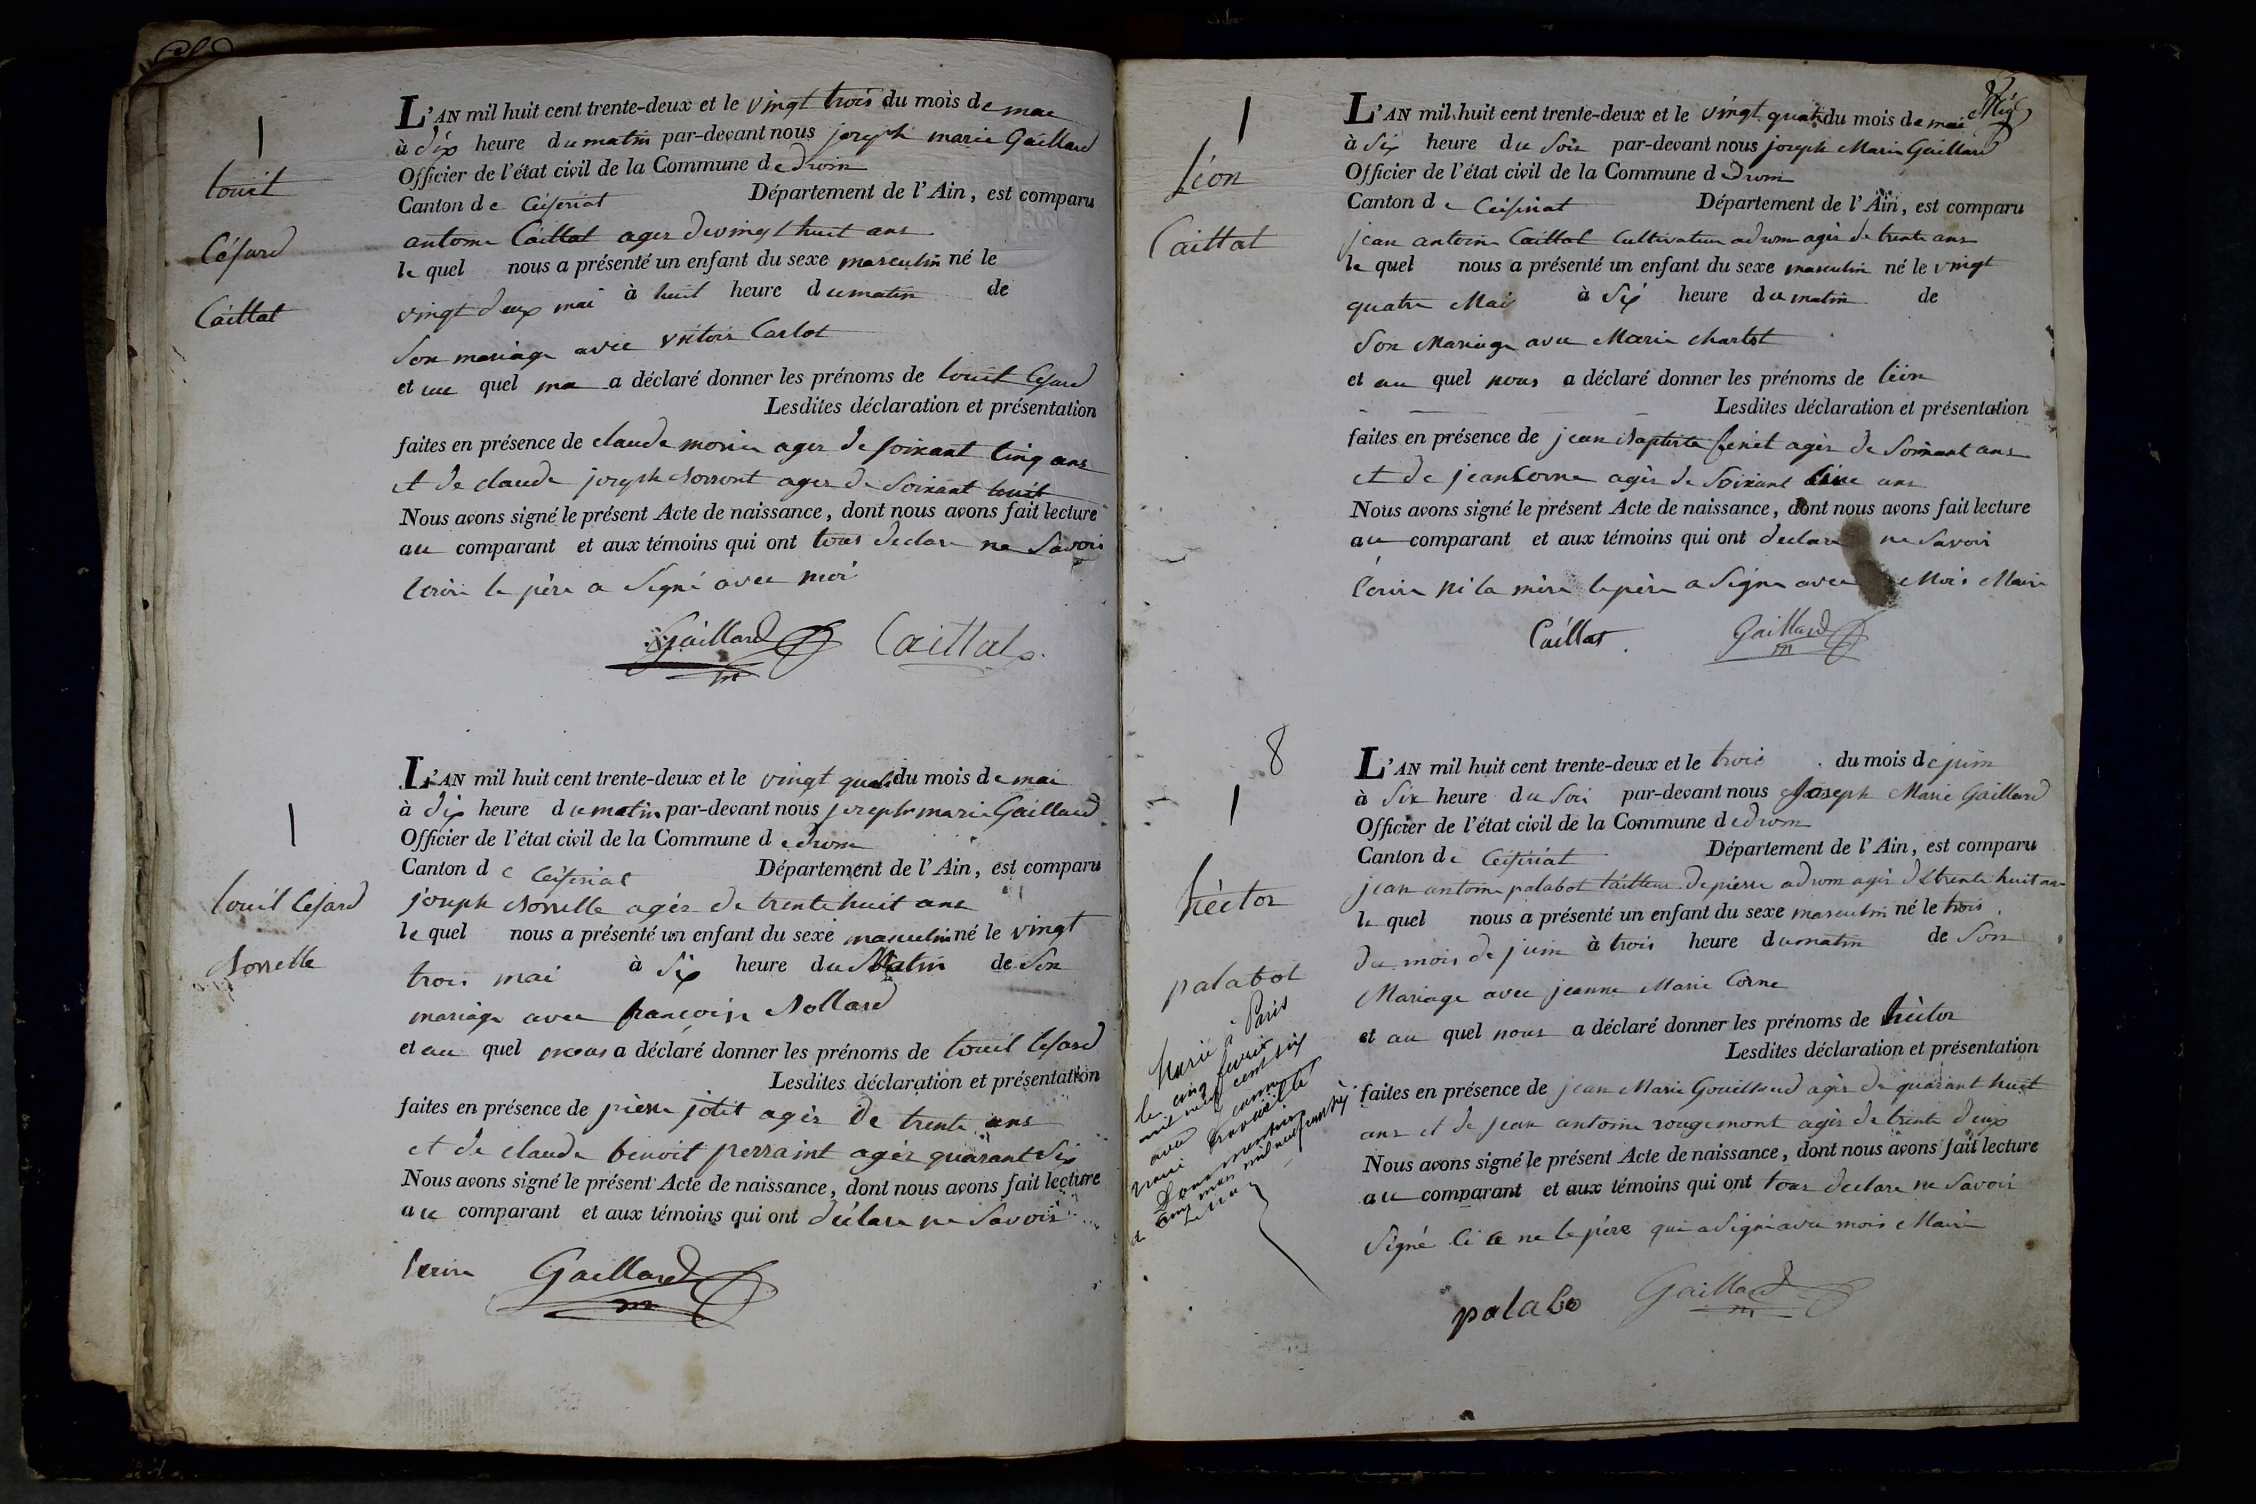 1
Louis
Césard
Caillat
L'AN mil huit cent trente-deux et le vingt trois du mois de mai
à dix heure du matin par-devant nous joseph marie Gaillard
Officier de l'état civil de la Commune de drom
Canton de Ceiseriat Département de l'Ain, est comparu
antoine Caillat ager de vingt huit ans
le quel nous a présenté un enfant du sexe masculin né le
vingt deux mai à huit heure du matin de
Son mariage avec Carlot
et au quel a déclaré donner les prénoms de Césard
Lesdites déclaration et présentation
faites en présence de claude ager de soixant cinq ans
et de claude joseph ager de Soixant
Nous avons signé le présent Acte de naissance, dont nous avons fait lecture
au comparant et aux témoins qui ont tous declare ne Savoir
Ecrire le père a Signé avec moi
Gaillard Caillat
1
Césard
L'AN mil huit cent trente-deux et le vingt quat du mois de mai
à dix heure du matin par-devant nous joseph marie Gaillard
Officier de l'état civil de la Commune de drom
Canton de Ceiseriat Département de l'Ain, est comparu
joseph agés de trente huit ans
le quel nous a présenté un enfant du sexe masculin né le vingt
trois mai à Six heure du Matin de Son
mariage avec françoise
et au quel nous a déclaré donner les prénoms de Césard
Lesdites déclaration et présentation
faites en présence de pierre agès de trente ans
et de claude benoit perraint agèr quarant Six
Nous avons signé le présent Acte de naissance, dont nous avons fait lecture
au comparant et aux témoins qui ont déclare ne Savoir
Ecrire Gaillard
1
Léon
Caillat
L'AN mil huit cent trente-deux et le vingt quatr du mois de mai
à Six heure du Soir par-devant nous joseph Marie Gaillard
Officier de l'état civil de la Commune de drom
Canton de Ceiseriat Département de l'Ain, est comparu
jean antoine Caillat Cultivateur a drom agès de trente ans
le quel nous a présenté un enfant du sexe masculin né le vingt
quatre Mai à Six heure du matin de
Son Mariage avec Marie charlot
et au quel nous a déclaré donner les prénoms de léon
Lesdites déclaration et présentation
faites en présence de jean baptiste agès de Soixant ans
et de jean Corne agès de Soixant ans
Nous avons signé le présent Acte de naissance, dont nous avons fait lecture
au comparant et aux témoins qui ont declare ne Savoir
Ecrire ni la mère le père a Signe avec Mois Maire
Caillat Gaillard
8
1
héctor
palabot
Marié à Paris
le cinq fevrier
mil neuf cent six
avec
L'AN mil huit cent trente-deux et le trois du mois de juin
à Six heure du Soir par-devant nous Joseph Marie Gaillard
Officier de l'état civil de la Commune de drom
Canton de Ceiseriat Département de l'Ain, est comparu
jean antoine palabot tailleur de pierre a drom agès de trente huit an
le quel nous a présenté un enfant du sexe masculin né le trois
du mois de juin à trois heure du matin de Son
Mariage avec jeanne Marie Corne
et au quel nous a déclaré donner les prénoms de héctor
Lesdites déclaration et présentation
faites en présence de jean Marie agès de quarant huit
ans et de jean antoine rougemont agès de trente deux
Nous avons signé le présent Acte de naissance, dont nous avons fait lecture
au comparant et aux témoins qui ont tous declare ne Savoir
Signé ne le père qui a Signé avec mois Maire
palabo Gaillard